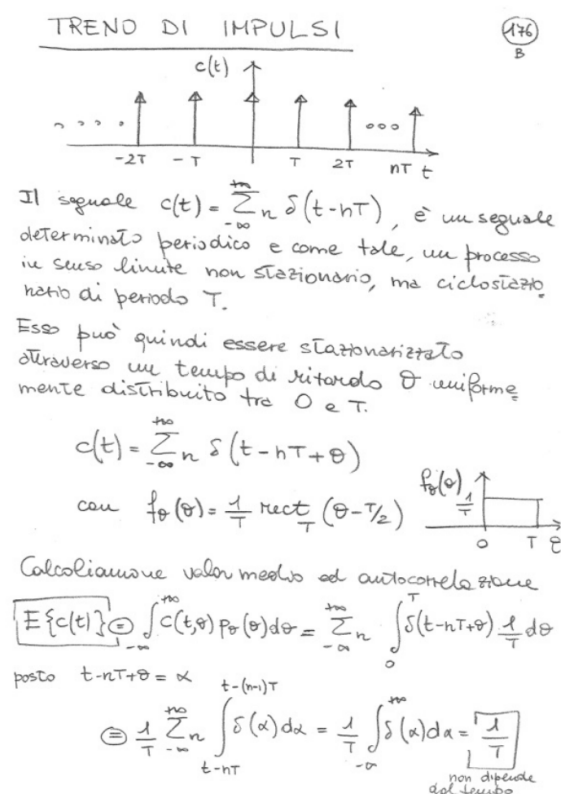 TRENO DI IMPULSI
176
B
c(t)
-2T -T T 2T nT t
Il segnale c(t) = +∞ Σn -∞ δ(t-nT), è un segnale
determinato periodico e come tale, un processo
in senso limite non stazionario, ma ciclostazio
nario di periodo T.
Esso può quindi essere stazionarizzato
attraverso un tempo di ritardo θ uniforme
mente distribuito tra 0 e T.
c(t) = +∞ Σn -∞ δ(t-nT+θ)
con fθ(θ) = 1/T rect T (θ-T/2)
fθ(θ)
1/T
0 T τ
Calcoliamone valor medio ed autocorrelazione
E{c(t)} = ∫ -∞ +∞ c(t,θ) pθ(θ)dθ = +∞ Σn -∞ ∫ 0 T δ(t-nT+θ) 1/T dθ
posto t-nT+θ = α
= 1/T +∞ Σn -∞ ∫ t-nT t-(n-1)T δ(α)dα = 1/T ∫ -∞ +∞ δ(α)dα = 1/T
non dipende
dal tempo